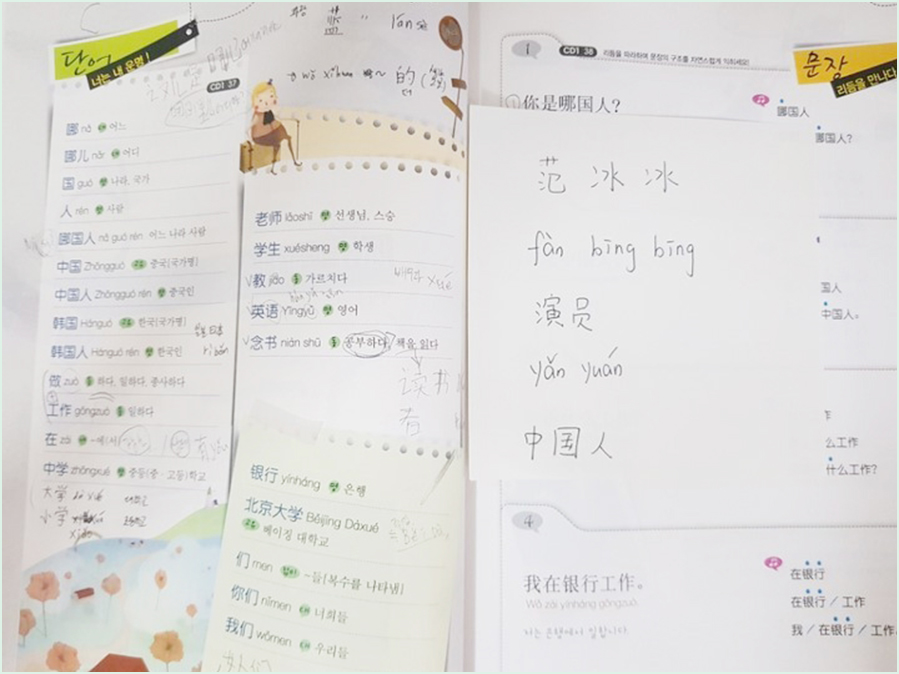 단어
너는 내 운명!
CD1 37
哪 nǎ 대 어느
哪儿 nǎr 대 어디
国 guó 명 나라, 국가
人 rén 명 사람
哪国人 nǎ guó rén 어느 나라 사람
中国 Zhōngguó 고유 중국[국가명]
中国人 Zhōngguó rén 명 중국인
韩国 Hánguó 고유 한국[국가명]
日本
韩国人 Hánguó rén 명 한국인
rì běn
做 zuò 동 하다, 일하다, 종사하다
工作 gōngzuò 동 일하다
在 zài
中学 zhōngxué 명 중등(중·고등)학교
大学 dà xué 대학교
小学
xiǎo
lán sè
wǒ xǐhuan
的
老师 lǎoshī 명 선생님, 스승
学生 xuésheng 명 학생
教 jiāo 동 가르치다
xué
英语 Yīngyǔ 명 영어
念书 niàn shū 동 공부하다, 책을 읽다
读书
看
银行 yínháng 명 은행
北京大学 Běijīng Dàxué
고유 베이징 대학교
们 men 접미 ~들[복수를 나타냄]
你们 nǐmen 대 너희들
我们 wǒmen 대 우리들
1
CD1 38
리듬을 따라하며 문장의 구조를 자연스럽게 익히세요!
문장
리듬을 만나다
你是哪国人?
哪国人
哪国人?
范 冰 冰
fàn bīng bīng
演员
yǎn yuán
中国人
国人
中国人。
作
么工作
什么工作?
4
我在银行工作。
Wǒ zài yínháng gōngzuò
저는 은행에서 일합니다
在银行
在银行 / 工作
我 / 在银行 / 工作